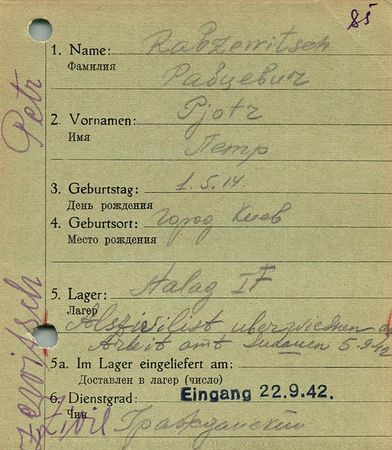 85
1. Name: Rabzewitsch
Фамилия Рабцевич
2. Vornamen: Pjotr
Имя Петр
3. Geburtstag: 1.5.14.
День рождения
4. Geburtsort: Город Киев
Место рождения
5. Lager: IF
Лагерь
Als Zivilist überwiesen a
Arbeitsamt Sudauen 5.9.42
5a. Im Lager eingeliefert am:
Доставлен в лагерь (число)
6. Dienstgrad: Eingang 22.9.42.
Чин Гражданский
Zivil
Petr